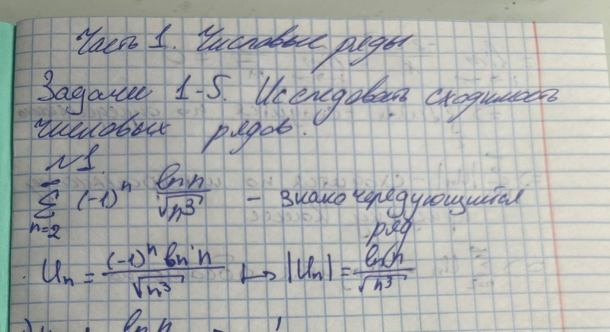 Часть 1. Числовые ряды
Задачи 1-5. Исследовать сходимость
числовых рядов.
№1
∞
Σ (-1)ⁿ ln n / √n³ - знакочередующийся
n=2
ряд
Uₙ = (-1)ⁿ ln n / √n³ ↦ |Uₙ| = ln n / √n³
ln n